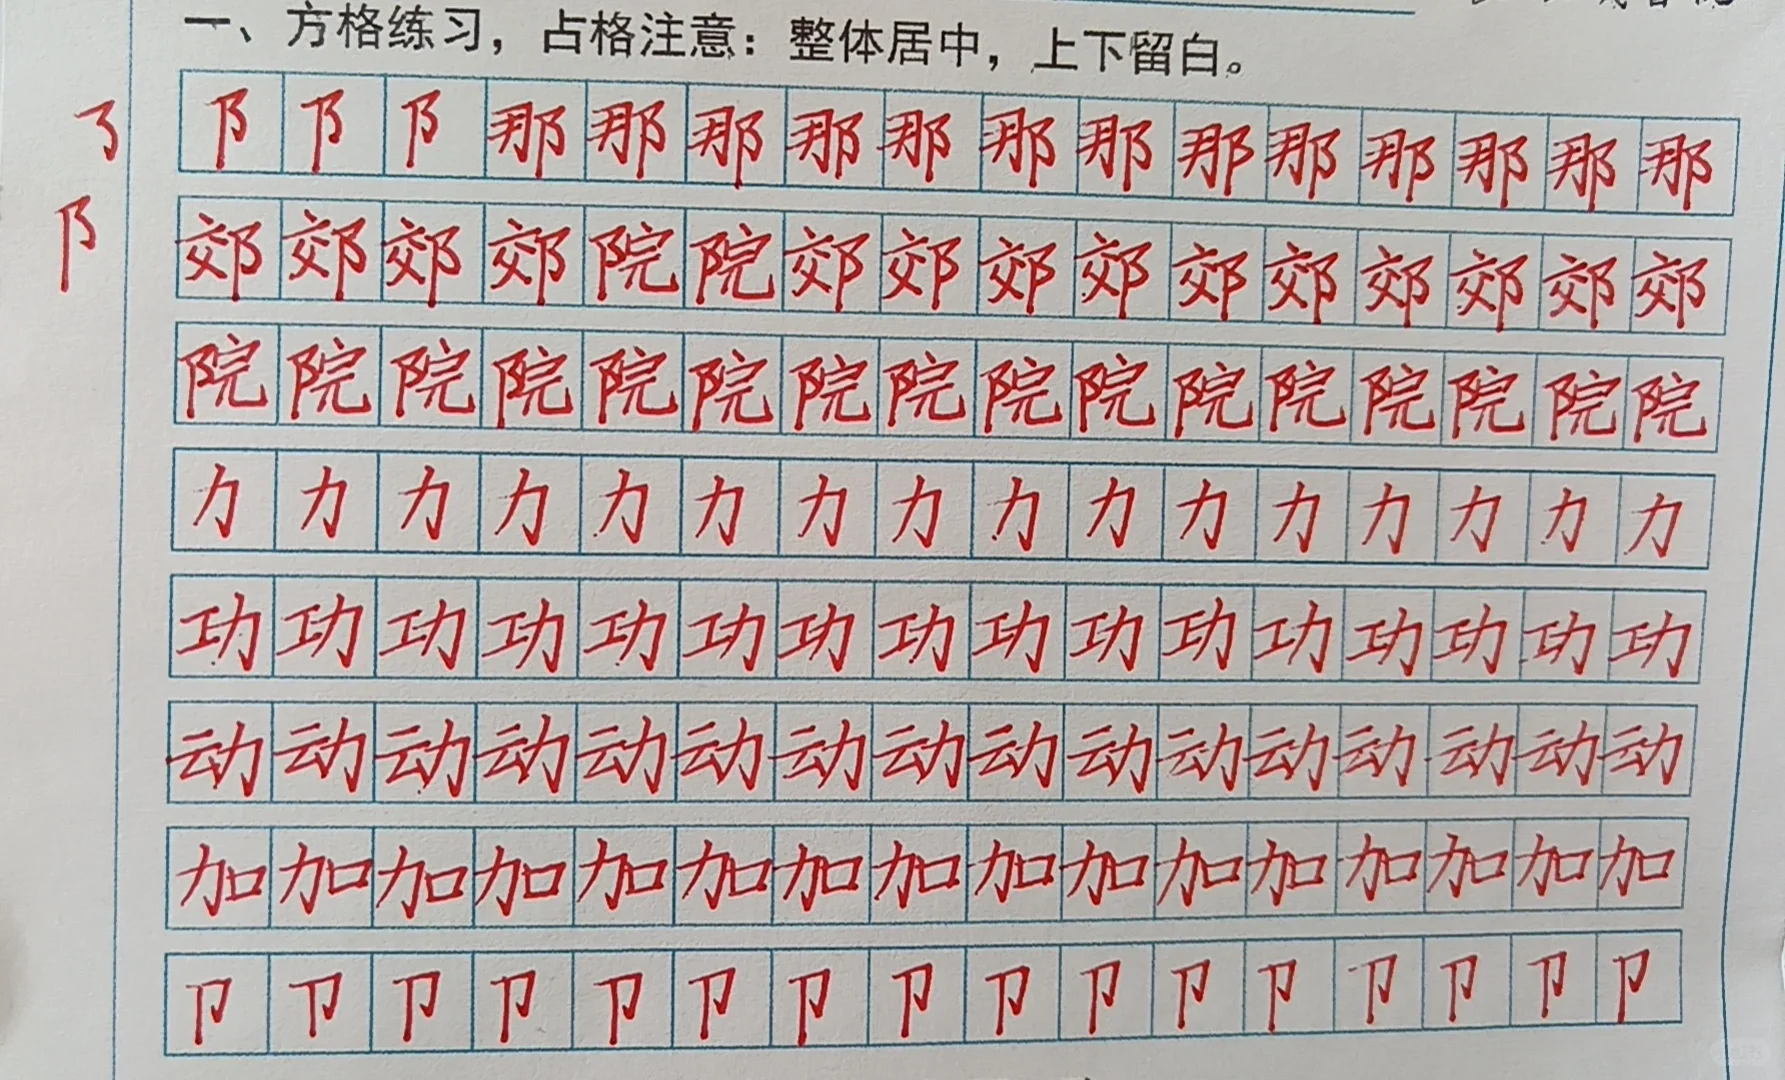 一、方格练习，占格注意：整体居中，上下留白。
阝阝阝那那那那那那那那那那那那那
郊郊郊郊院院郊郊郊郊郊郊郊郊郊郊
院院院院院院院院院院院院院院院院
力力力力力力力力力力力力力力力力
功功功功功功功功功功功功功功功功
动动动动动动动动动动动动动动动动
加加加加加加加加加加加加加加加加
卩卩卩卩卩卩卩卩卩卩卩卩卩卩卩卩
阝